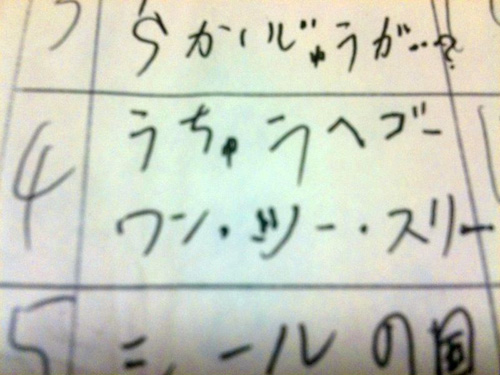 3 らかいじゅうが…?
4 うちゅうへゴー
ワン・ツー・スリー
5 シールの国